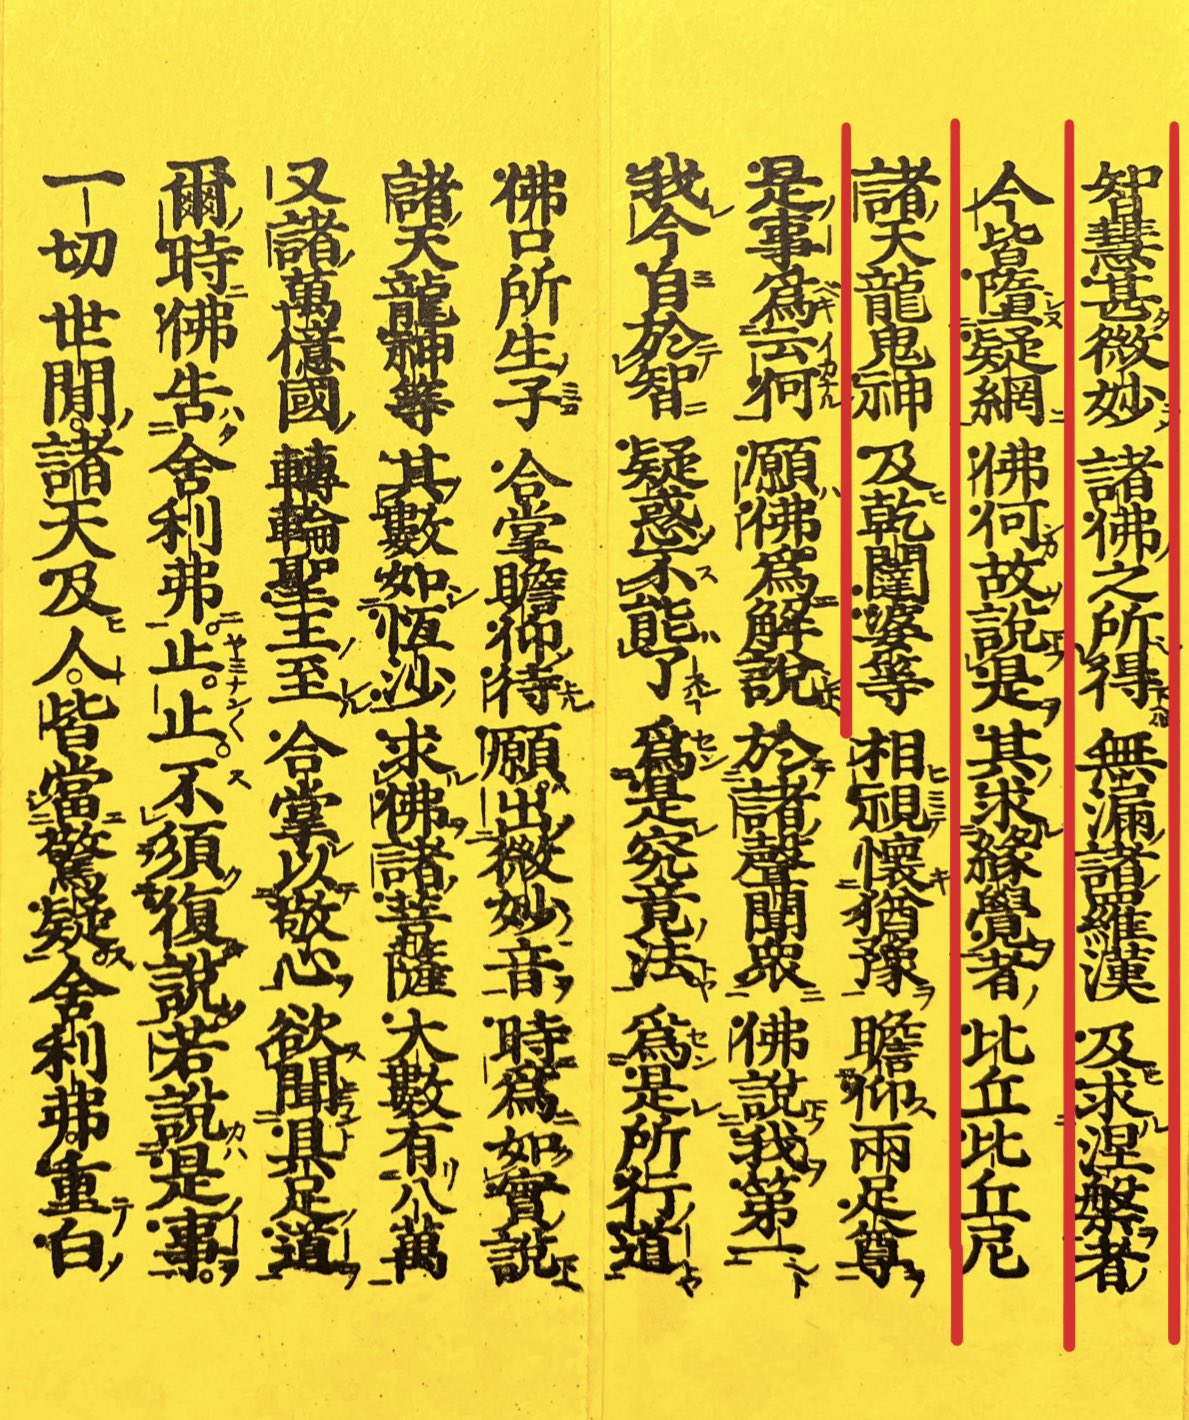 智慧甚微妙 諸佛之所得 無漏諸羅漢 及求涅槃者
今皆墮疑網 佛何故說是 其求緣覺者 比丘比丘尼
諸天龍鬼神 及乾闥婆等 相視懷猶豫 瞻仰兩足尊
是事爲云何 願佛爲解說 於諸聲聞眾 佛說我第一
我今自於智 疑惑不能了 爲是究竟法 爲是所行道
佛口所生子 合掌瞻仰待 願出微妙音 時爲如實說
諸天龍神等 其數如恆沙 求佛諸菩薩 大數有八萬
又諸萬億國 轉輪聖王至 合掌以敬心 欲聞具足道
爾時佛告舍利弗。止。止。不須復說。若說是事。
一切世間。諸天及人。皆當驚疑。舍利弗。重白